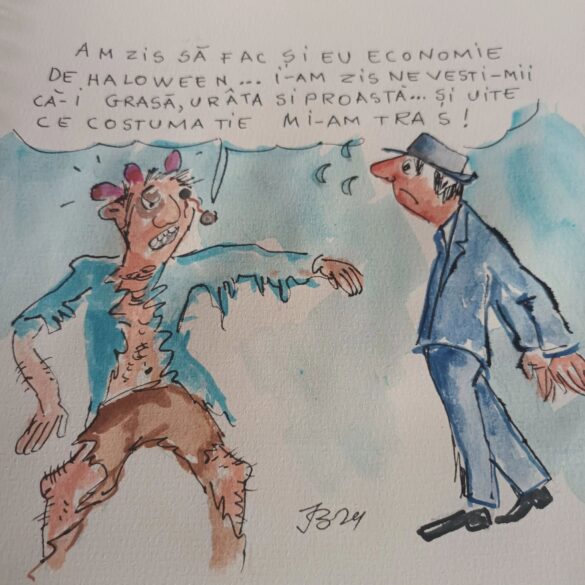 AM ZIS SĂ FAC ȘI EU ECONOMIE
DE HALOWEEN... I-AM ZIS NEVESTI-MII
CĂ-I GRASĂ, URÂTA SI PROASTĂ... ȘI UITE
CE COSTUMATIE MI-AM TRAS!